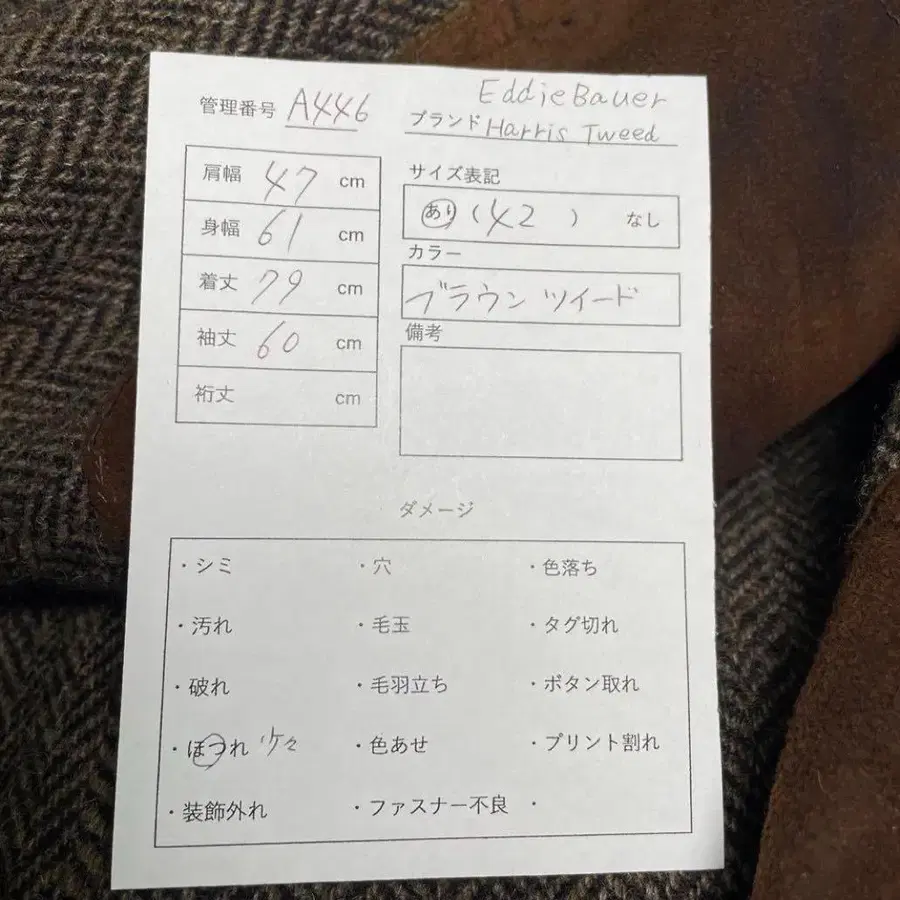 管理番号 A446
Eddie Bauer
ブランド Harris Tweed
肩幅 47 cm
身幅 61 cm
着丈 79 cm
袖丈 60 cm
裄丈 cm
サイズ表記
あり (42) なし
カラー
ブラウン ツイード
備考
ダメージ
・シミ ・穴 ・色落ち
・汚れ ・毛玉 ・タグ切れ
・破れ ・毛羽立ち ・ボタン取れ
・ほつれ 少々 ・色あせ ・プリント割れ
・装飾外れ ・ファスナー不良 ・